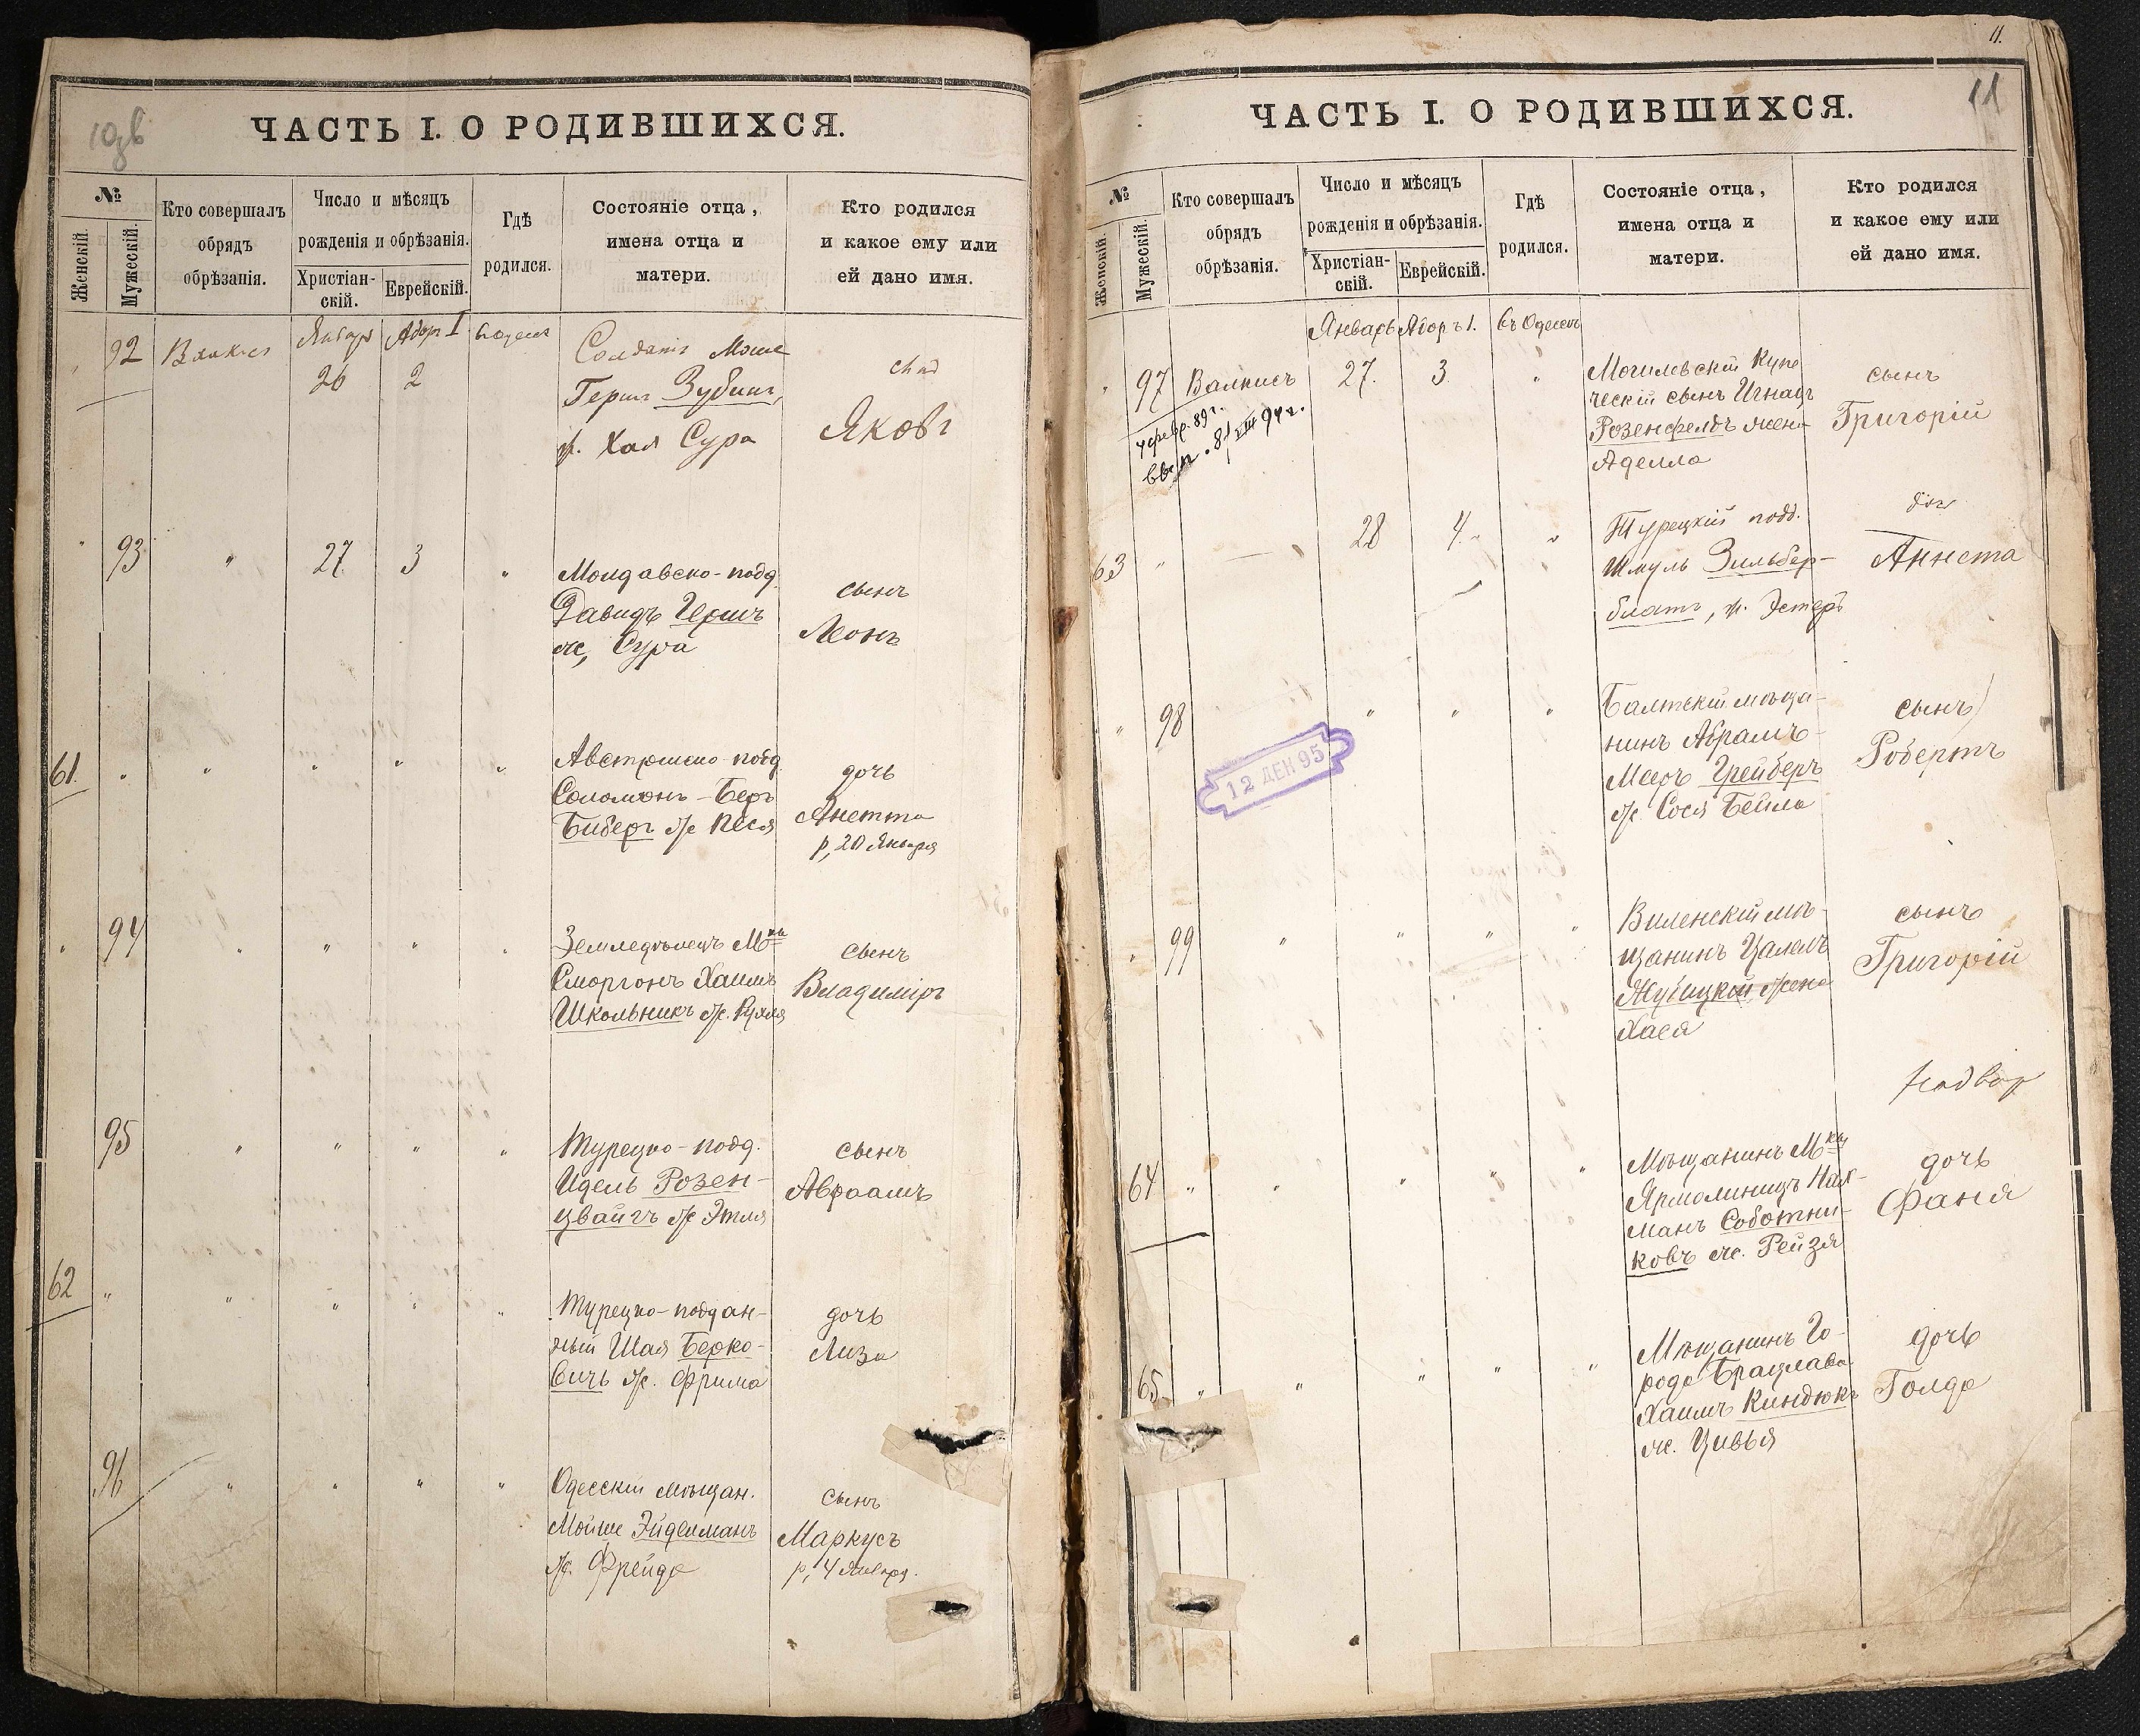 10об
ЧАСТЬ I. О РОДИВШИХСЯ.
№
Женскій.
Мужескій.
Кто совершалъ
обрядъ
обрѣзанія.
Число и мѣсяцъ
рожденія и обрѣзанія.
Христіан-
скій.
Еврейскій.
Гдѣ
родился.
Состояніе отца,
имена отца и
матери.
Кто родился
и какое ему или
ей дано имя.
92
Январь Адаръ I
26 2
Солдатъ Мошe
Герш Зубинъ,
ж. Хая Сура
Яковъ
93 " 27 3 "
Молдавско-подд.
Давидъ Гершъ
ж, Сура
сынъ
Леонъ
61. " " " " "
Австрійско-подд.
Соломонъ-Беръ
Биберъ ж Песя
дочь
Анетта
р, 20 Января
" 94 " " " "
Земледѣлецъ Мки
Сморгонъ Хаимъ
Школьникъ ж. Рухля
сынъ
Владиміръ
95 " " " "
Турецко-подд.
Идель Розен-
цвайгъ ж Этля
сынъ
Авраамъ
62 " " " " "
Турецко-поддан-
ный Шая Берко-
вичъ ж. Фрима
дочь
Лиза
96 " " " "
Одесскій мѣщан.
Мойше Эйдельманъ
ж. Фрейда
сынъ
Маркусъ
р, 4 Январ.
11.
11
ЧАСТЬ I. О РОДИВШИХСЯ.
№
Женскій.
Мужескій.
Кто совершалъ
обрядъ
обрѣзанія.
Число и мѣсяцъ
рожденія и обрѣзанія.
Христіан-
скій.
Еврейскій.
Гдѣ
родился.
Состояніе отца,
имена отца и
матери.
Кто родился
и какое ему или
ей дано имя.
Январь Адаръ 1. въ Одессѣ
" 97 27. 3. "
Могилевскій Купе
ческій сынъ Игнацъ
Розенфельдъ жена
Аделла
сынъ
Григорій
63 " 28 4. "
Турецкій подд.
Шмуль Зильбер-
блатъ, ж. Эстеръ
Аннета
" 98 " " "
12 ДЕК 95
Балтскій мѣща-
нинъ Абрамъ-
Мееръ Грейберъ
ж. Сося Бейла
сынъ
Робертъ
" 99 " " " "
Виленскій мѣ-
щанинъ Цалелъ
жена
Хася
сынъ
Григорій
64 " " " " "
Мѣщанинъ Мки
Ярмолинецъ Нах-
манъ Соботни-
ковъ ж. Рейзя
дочь
Фаня
65 " " " " "
Мѣщанинъ Го-
рода Брацлава
Хаимъ Киндюкъ
ж. Цивья
дочь
Голда